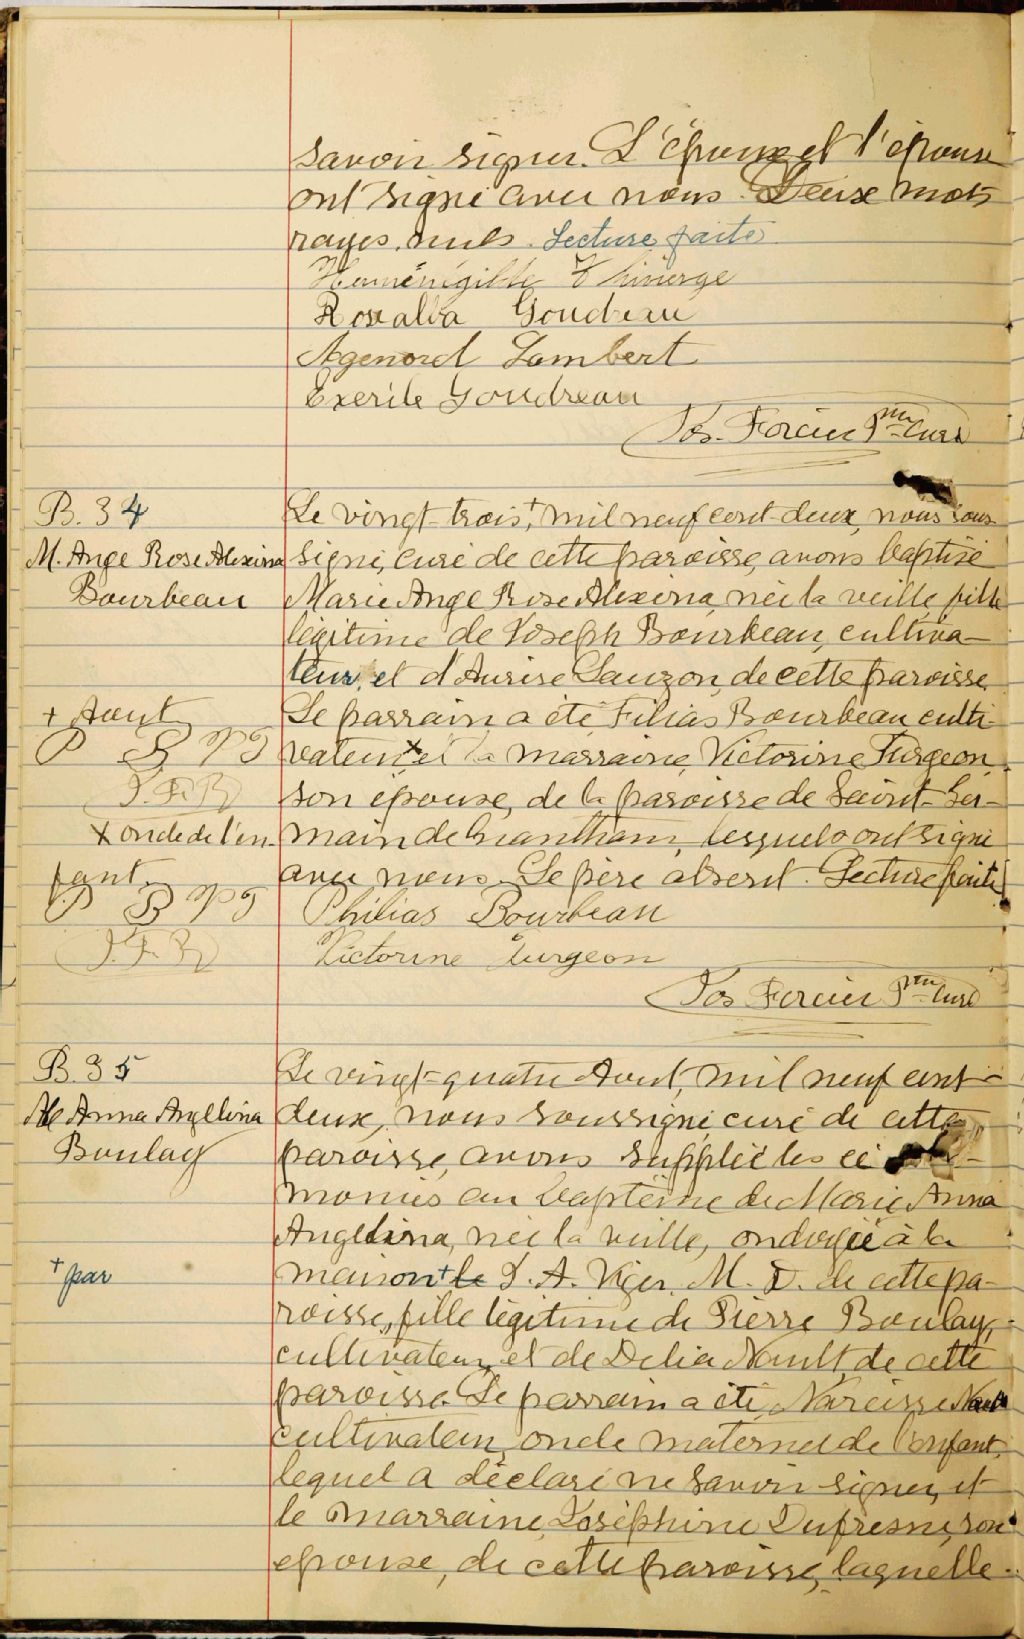 savoir signer. L'époux et l'épouse
ont signé avec nous. Deux mots
rayés nuls. Lecture faite.
Herménégilde Thivierge
Rosalba Goudreau
Agenord Lambert
Exerile Goudreau
Jos. Forcier Ptre Curé
B. 34
M. Ange Rose Alexina
Bourbeau
Le vingt-trois +, mil neuf cent-deux, nous sous
signé, curé de cette paroisse, avons baptisé
Marie Ange Rose Alexina, née la veille, fille
légitime de Joseph Bourbeau, cultiva-
teur, et d'Aurise Lauzon, de cette paroisse.
Le parrain a été Filias Bourbeau culti-
vateur x et la marraine, Victorine Turgeon,
son épouse, de la paroisse de Saint-Ger-
main de Grantham, lesquels ont signé
avec nous. Le père absent. Lecture faite.
+ Aout
P B V T
J. F. P.
x oncle de l'en-
fant.
P B V T
J. F. P.
Philias Bourbeau
Victorine Turgeon
Jos Forcier Ptre Curé
B. 35
M Anna Angélina
Boulay
Le vingt-quatre Aout, mil neuf cent-
deux, nous soussigné curé de cette
paroisse, avons suppléé les cé
monies au baptême de Marie Anna
Angélina, née la veille, ondoyée à la
maison + le J. A. Viger, M. D. de cette pa-
roisse, fille légitime de Pierre Boulay,
cultivateur, et de Delia Nault, de cette
paroisse. Le parrain a été, Narcisse Nault
cultivateur, oncle maternel de l'enfant,
lequel a déclaré ne savoir signer, et
le marraine, Joséphine Dufresne, son
épouse, de cette paroisse, laquelle
+ par